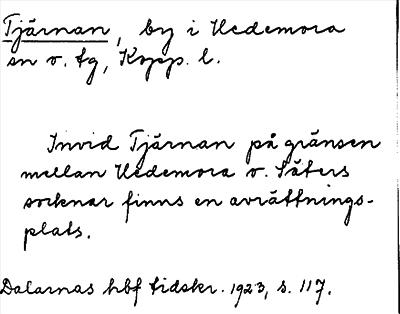 Tjärnan, by i Hedemora
sn o. tg, Kopp. l.
Invid Tjärnan på gränsen
mellan Hedemora o. Säters
socknar finns en avrättnings-
plats.
Dalarnas hbf tidskr. 1923, s. 117.